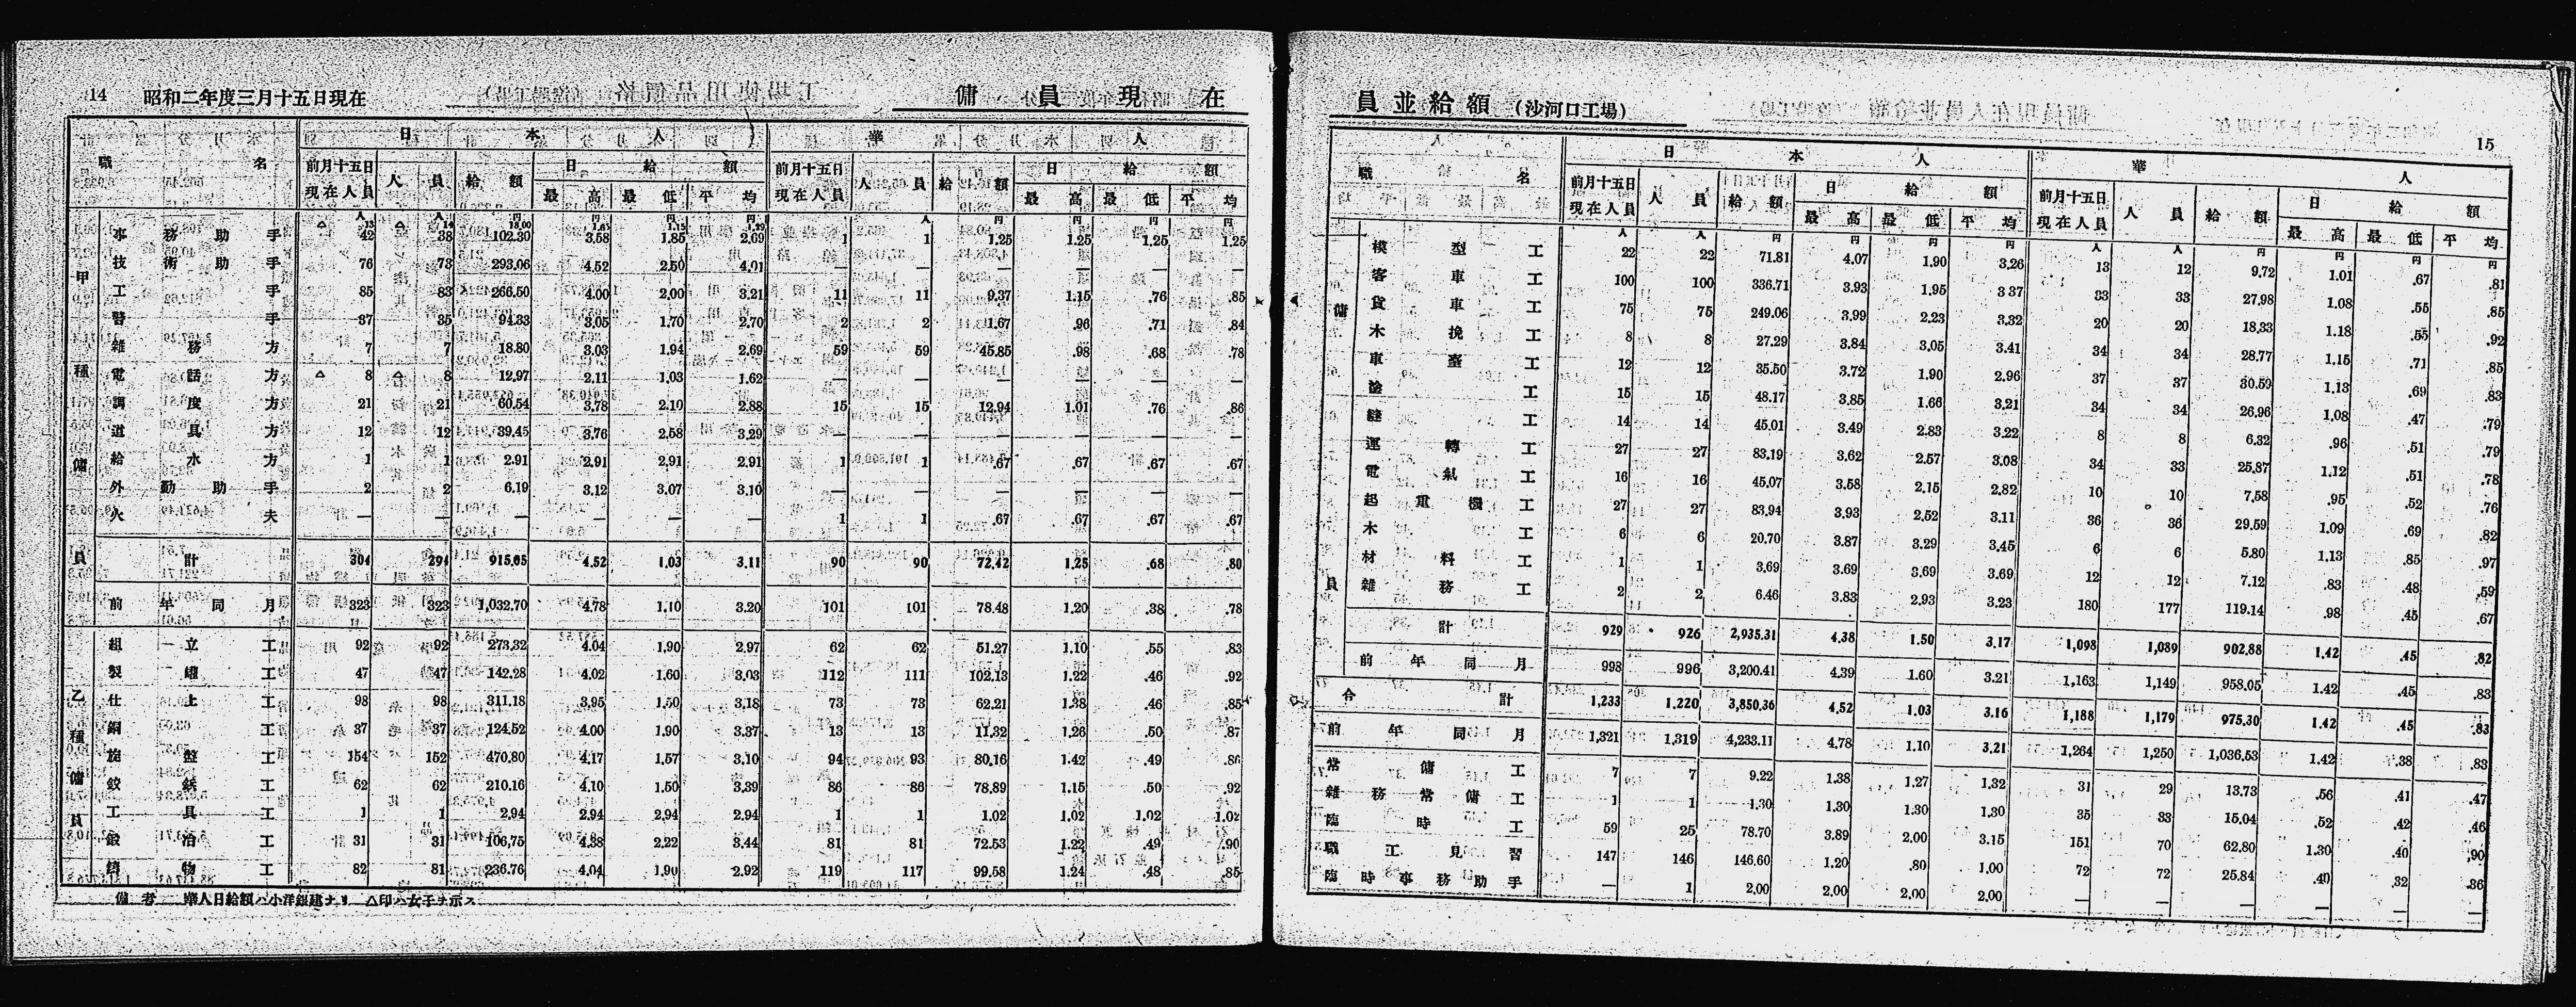 14 昭和二年度三月十五日現在 傭員現在
職名 日本人 華人
前月十五日現在人員 人員 給額 日給額 前月十五日現在人員 人員 給額 日給額
最高 最低 平均 最高 最低 平均
人 人 円 円 円 円 人 人 円 円 円 円
甲種傭員
△ 13 △ 14 18.00 1.61 1.15 1.29
事務助手 42 38 102.30 3.58 1.85 2.69 1 1 1.25 1.25 1.25 1.25
技術助手 76 73 293.06 4.52 2.50 4.01 — — — — — —
工手 85 83 266.50 4.00 2.00 3.21 11 11 9.37 1.15 .76 .85
習手 37 35 94.33 3.05 1.70 2.70 2 2 1.67 .96 .71 .84
雑務方 7 7 18.80 3.03 1.94 2.69 59 59 45.85 .98 .68 .78
電話方 △ 8 △ 8 12.97 2.11 1.03 1.62 — — — — — —
調度方 21 21 60.54 3.78 2.10 2.88 15 15 12.94 1.01 .76 .86
道具方 12 12 39.45 3.76 2.58 3.29 — — — — — —
給水方 1 1 2.91 2.91 2.91 2.91 1 1 .67 .67 .67 .67
外勤助手 2 2 6.19 3.12 3.07 3.10 — — — — — —
火夫 — — — — — — 1 1 .67 .67 .67 .67
計 304 294 915.05 4.52 1.03 3.11 90 90 72.42 1.25 .68 .80
前年同月 323 323 1,032.70 4.78 1.10 3.20 101 101 78.48 1.20 .38 .78
乙種傭員
組立工 92 92 273.32 4.04 1.90 2.97 62 62 51.27 1.10 .55 .83
製罐工 47 47 142.28 4.02 1.60 3.03 112 111 102.13 1.22 .46 .92
仕上工 98 98 311.18 3.95 1.50 3.18 73 73 62.21 1.38 .46 .85
銅工 37 37 124.52 4.00 1.90 3.37 13 13 11.32 1.26 .50 .87
旋盤工 154 152 470.80 4.17 1.57 3.10 94 93 80.16 1.42 .49 .86
鉸鋲工 62 62 210.16 4.10 1.50 3.39 86 86 78.89 1.15 .50 .92
工具工 1 1 2.94 2.94 2.94 2.94 1 1 1.02 1.02 1.02 1.02
鍛冶工 31 31 106.75 4.38 2.22 3.44 81 81 72.53 1.22 .49 .90
鑄物工 82 81 236.76 4.04 1.90 2.92 119 117 99.58 1.24 .48 .85
備考 華人日給額ハ小洋銀建ナリ △印ハ女子ヲ示ス
員並給額(沙河口工場) 15
職名 日本人 華人
前月十五日現在人員 人員 給額 日給額 前月十五日現在人員 人員 給額 日給額
最高 最低 平均 最高 最低 平均
人 人 円 円 円 円 人 人 円 円 円 円
傭員
模型工 22 22 71.81 4.07 1.90 3.26 13 12 9.72 1.01 .67 .81
客車工 100 100 336.71 3.93 1.95 3.37 33 33 27.98 1.08 .55 .85
貨車工 75 75 249.06 3.99 2.23 3.32 20 20 18.33 1.18 .55 .92
木挽工 8 8 27.29 3.84 3.05 3.41 34 34 28.77 1.15 .71 .85
車臺工 12 12 35.50 3.72 1.90 2.96 37 37 30.59 1.13 .69 .83
塗工 15 15 48.17 3.85 1.66 3.21 34 34 26.96 1.08 .47 .79
縫工 14 14 45.01 3.49 2.83 3.22 8 8 6.32 .96 .51 .79
運轉工 27 27 83.19 3.62 2.57 3.08 34 33 25.87 1.12 .51 .78
電氣工 16 16 45.07 3.58 2.15 2.82 10 10 7.58 .95 .52 .76
起重機工 27 27 83.94 3.93 2.52 3.11 36 36 29.59 1.09 .69 .82
木工 6 6 20.70 3.87 3.29 3.45 6 6 5.80 1.13 .85 .97
材料工 1 1 3.69 3.69 3.69 3.69 12 12 7.12 .83 .48 .59
雑務工 2 2 6.46 3.83 2.93 3.23 180 177 119.14 .98 .45 .67
計 929 926 2,935.31 4.38 1.50 3.17 1,098 1,089 902.88 1.42 .45 .82
前年同月 998 996 3,200.41 4.39 1.60 3.21 1,163 1,149 958.05 1.42 .45 .83
合計 1,233 1.220 3,850.36 4.52 1.03 3.16 1,188 1,179 975.30 1.42 .45 .83
前年同月 1,321 1,319 4,233.11 4.78 1.10 3.21 1,264 1,250 1,036.53 1.42 .38 .83
常傭工 7 7 9.22 1.38 1.27 1.32 31 29 13.73 .56 .41 .47
雑務常傭工 1 1 1.30 1.30 1.30 1.30 35 33 15.04 .52 .42 .46
臨時工 59 25 78.70 3.89 2.00 3.15 151 70 62.80 1.30 .40 .90
職工見習 147 146 146.60 1.20 .80 1.00 72 72 25.84 .40 .32 .36
臨時事務助手 — 1 2.00 2.00 2.00 2.00 — — — — — —